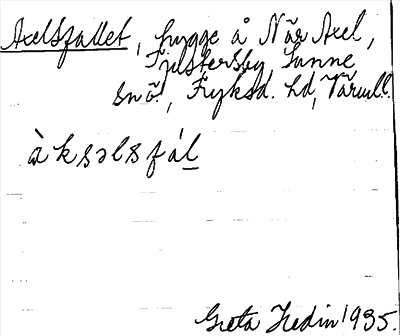 Axelsfallet, hygge å När Axel,
Tjustersby Sunne
sn, Fryksd. hd, Värml.
àksəlsfál
Greta Hedin 1935.